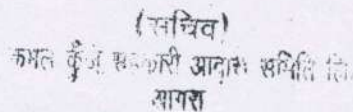 (सचिव)
कमल कुँज सहकारी आवास समिति लि
आगरा